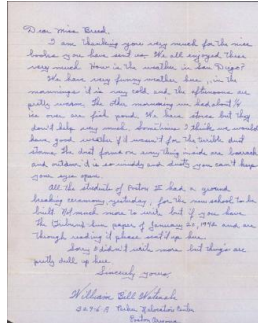 Dear Miss Breed,
I am thanking you very much for the nice
books you have sent us. We all enjoyed them
very much. How is the weather in San Diego?
We have very funny weather here, in the
mornings it is very cold, and the afternoons are
pretty warm. The other morning we had about
ice over are fish pond. We have stoves but they
don't help very much. Sometimes I think we would
have good weather if it wasn't for the terrible dust
storms. The dust forms on every thing inside are barrack
and outdoors it is so muddy and dusty you can't keep
your eyes open.
All the students of Poston III had a ground
breaking ceremony yesterday, for the new school to be
built. Not much more to write but if you have
the Tribune Sun paper of January 20, and are
through reading it please send it up here.
Sorry I didn't write more but things are
pretty dull up here.
Sincerely yours,
William Bill Watanabe
Relocation Center
Poston Arizona